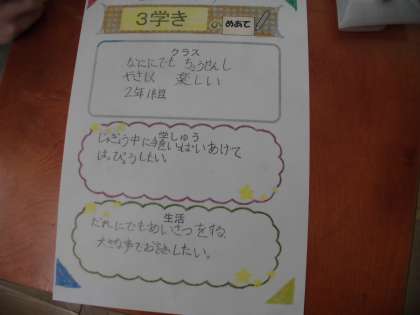 3学き
の
めあて
クラス
なににでも ちょうせんし
やさしく 楽しい
2年1組
学しゅう
じゅぎょう中に いっぱいあけて
はっぴょうしたい。
生活
だれにでもあいさつを
大きな声でお話したい。